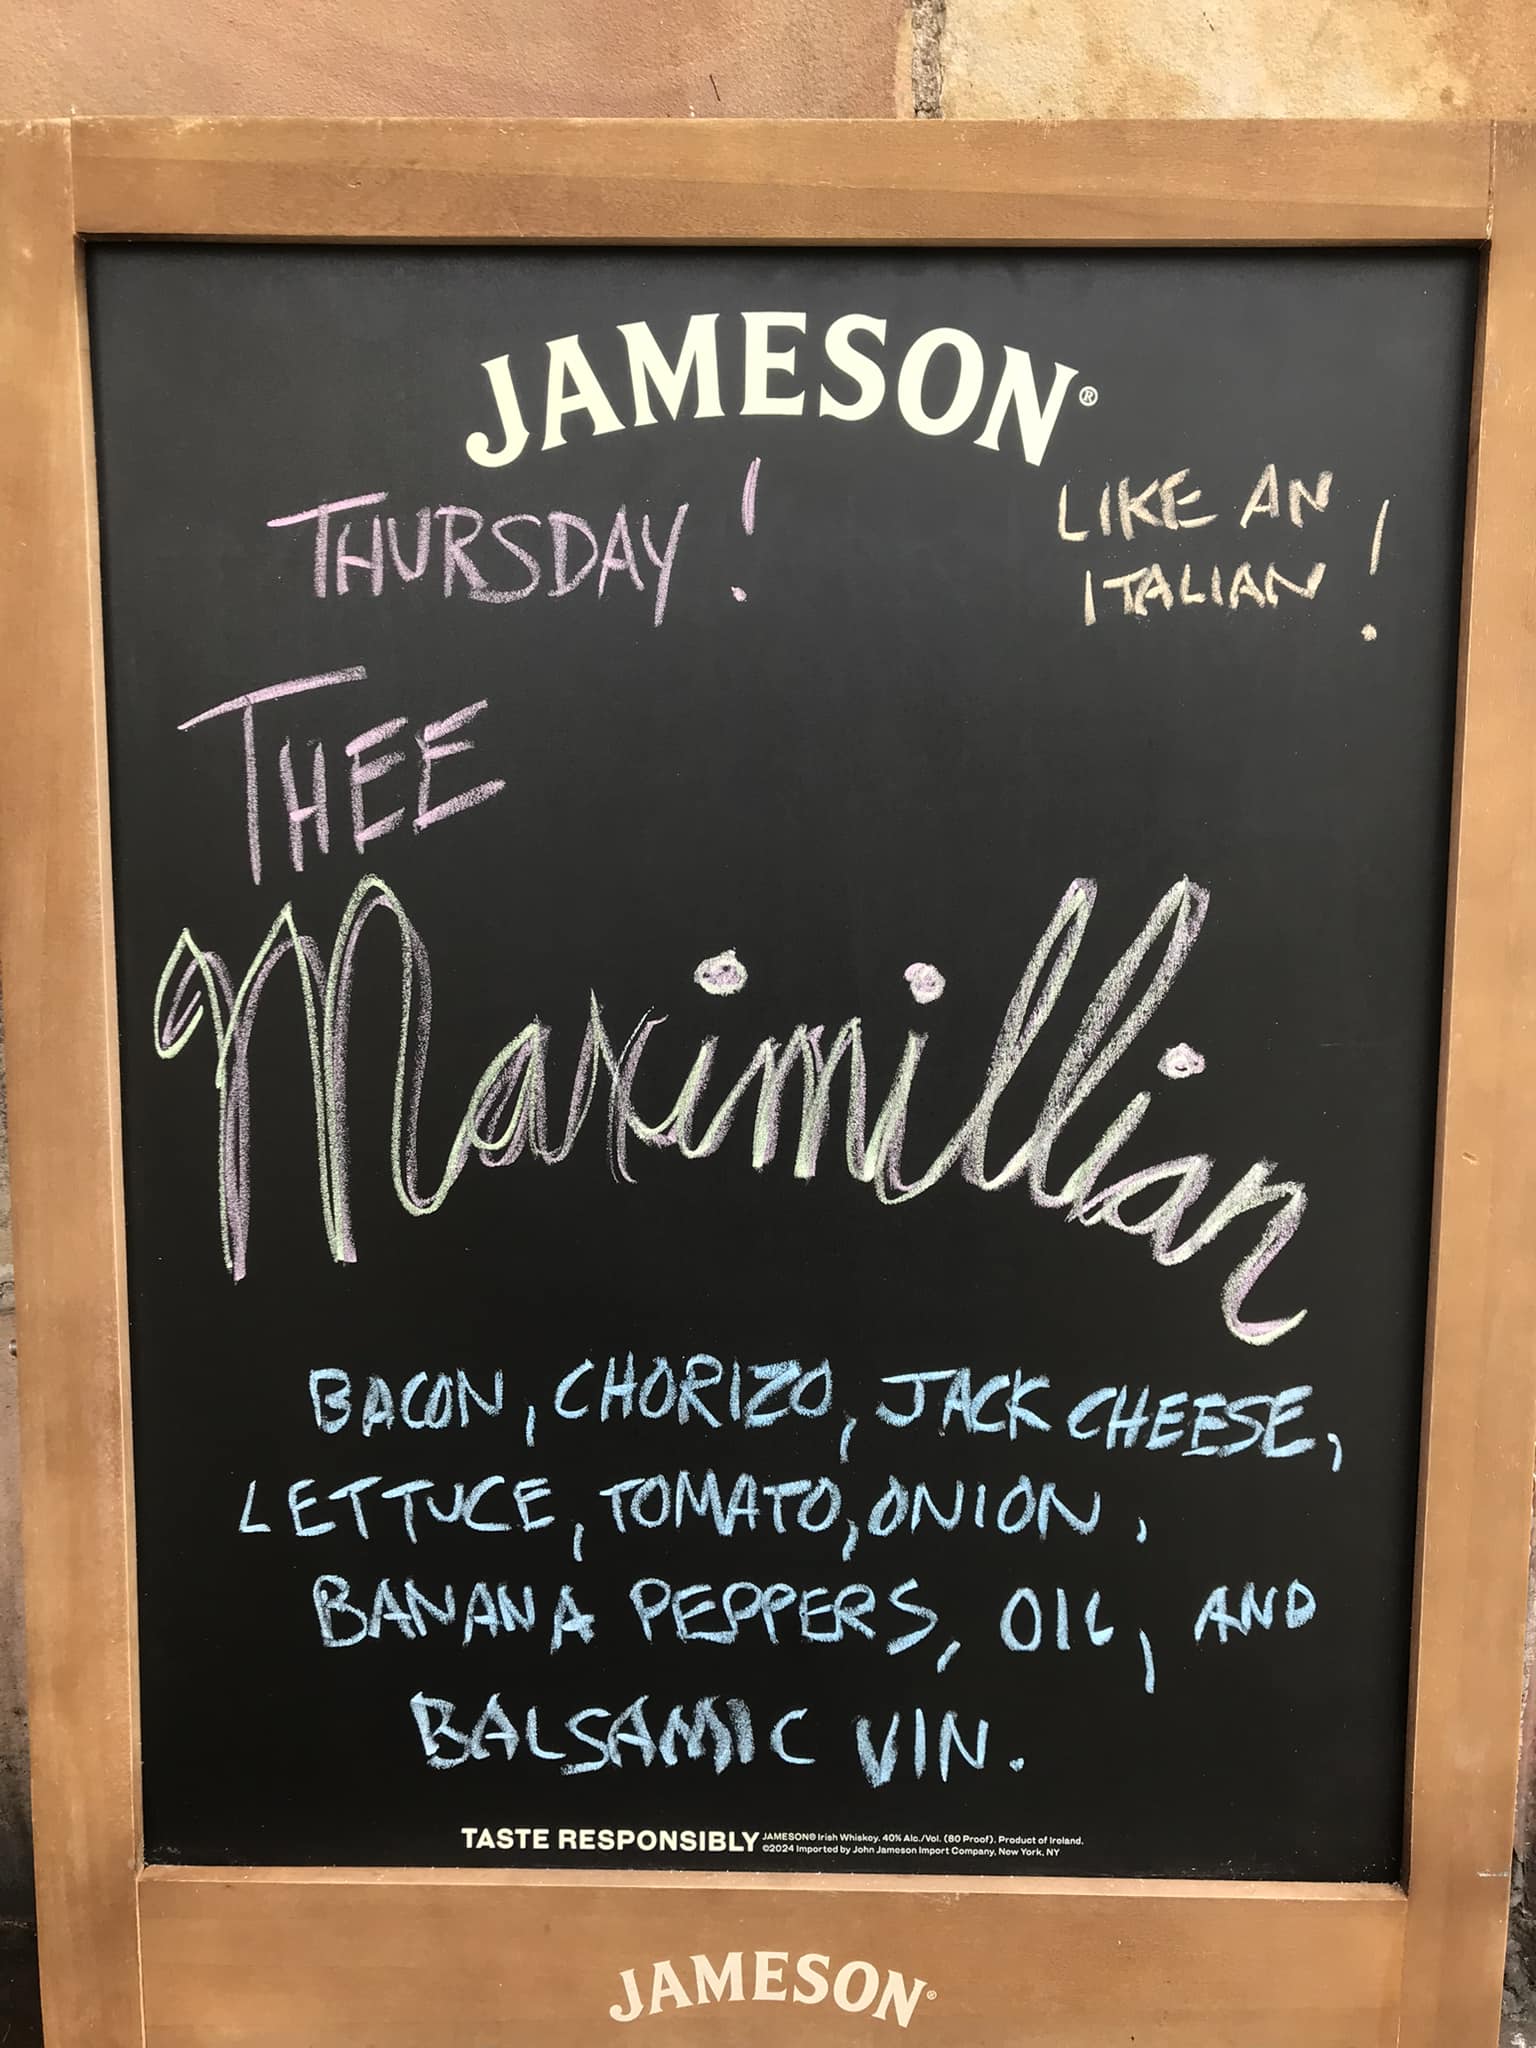 JAMESON®
THURSDAY!
LIKE AN
ITALIAN!
THEE
Maximillian
BACON, CHORIZO, JACK CHEESE,
LETTUCE, TOMATO, ONION,
BANANA PEPPERS, OIL, AND
BALSAMIC VIN.
TASTE RESPONSIBLY
JAMESON® Irish Whiskey. 40% Alc./Vol. (80 Proof). Product of Ireland.
©2024 Imported by John Jameson Import Company, New York, NY
JAMESON®